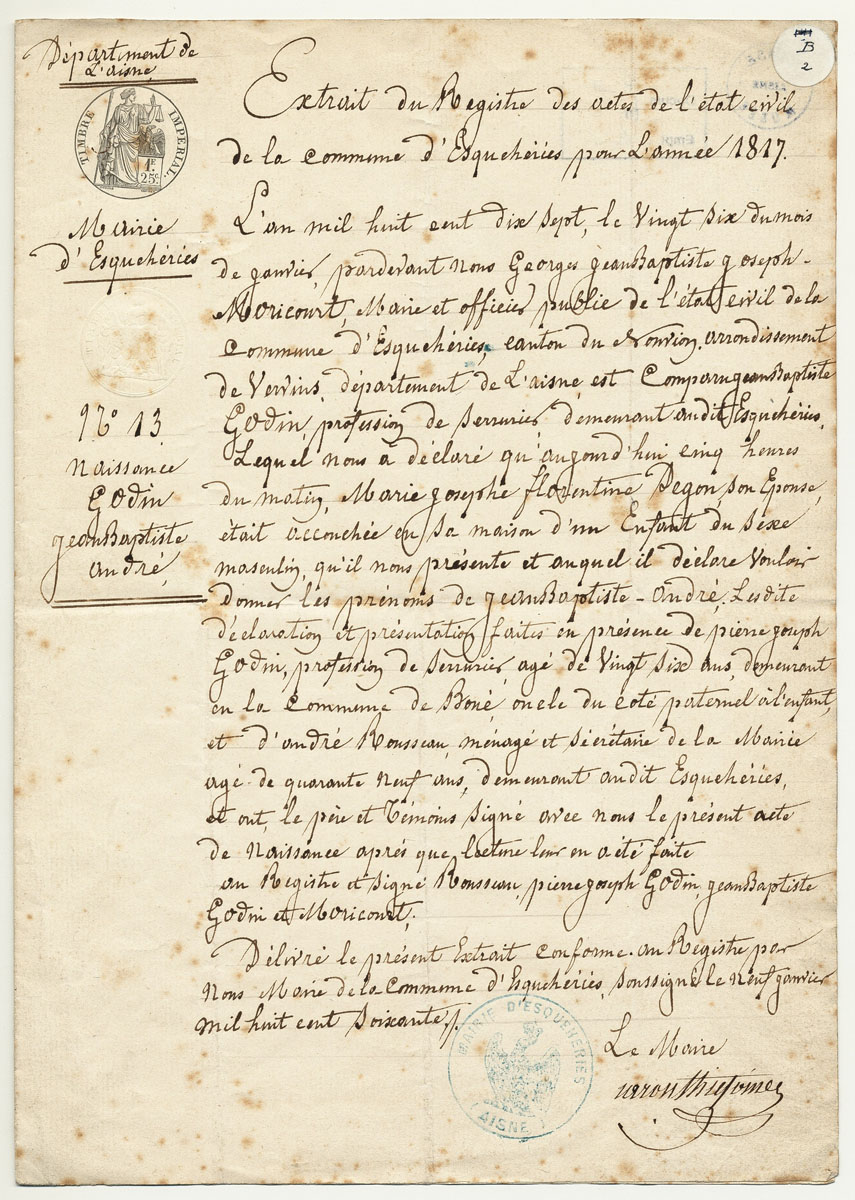 Département de
L'aisne
TIMBRE IMPERIAL
1F
25c
Mairie
d'Esquehéries
N° 13
Naissance
Godin
Jean Baptiste
andré
B
2
Extrait du Registre des actes de l'état civil
de la Commune d'Esquehéries pour L'année 1817.
L'an mil huit cent dix sept, le Vingt Six du mois
de janvier, pardevant nous Georges jean Baptiste joseph
Moricourt, Maire et officier public de l'état civil de la
Commune d'Esquehéries, canton du Nouvion, arrondissement
de Vervins, département de L'aisne, est Comparu jean Baptiste
Godin, profession de Serrurier demeurant audit Esquehéries,
Lequel nous a déclaré qu'aujourd'hui cinq heures
du matin, Marie josephe florentine Degon, son Epouse,
était accouchée en sa maison d'un Enfant du Séxe
masculin, qu'il nous présente et auquel il déclare Vouloir
donner les prénoms de jean Baptiste - andré. Lesdite
déclaration et présentation faites en présence de pierre joseph
Godin, profession de Serrurier, agé de Vingt Six ans, demeurant
en la Commune de Boué, oncle du coté paternel à l'enfant,
et d'andré Rousseau, ménagé et Sécrétaire de la Mairie
agé de quarante Neuf ans, demeurant audit Esquehéries,
et ont, le père et Témoins Signé avec nous le présent acte
de Naissance aprés que lecture leur en a été faite
au Registre et Signé Rousseau, pierre joseph Godin, jean Baptiste
Godin et Moricourt.
Délivré le présent Extrait Conforme au Registre par
Nous Maire de la Commune d'Esquehéries, Soussigné le Neuf janvier
mil huit cent Soixante.
Le Maire
MAIRIE D'ESQUEHERIES
AISNE